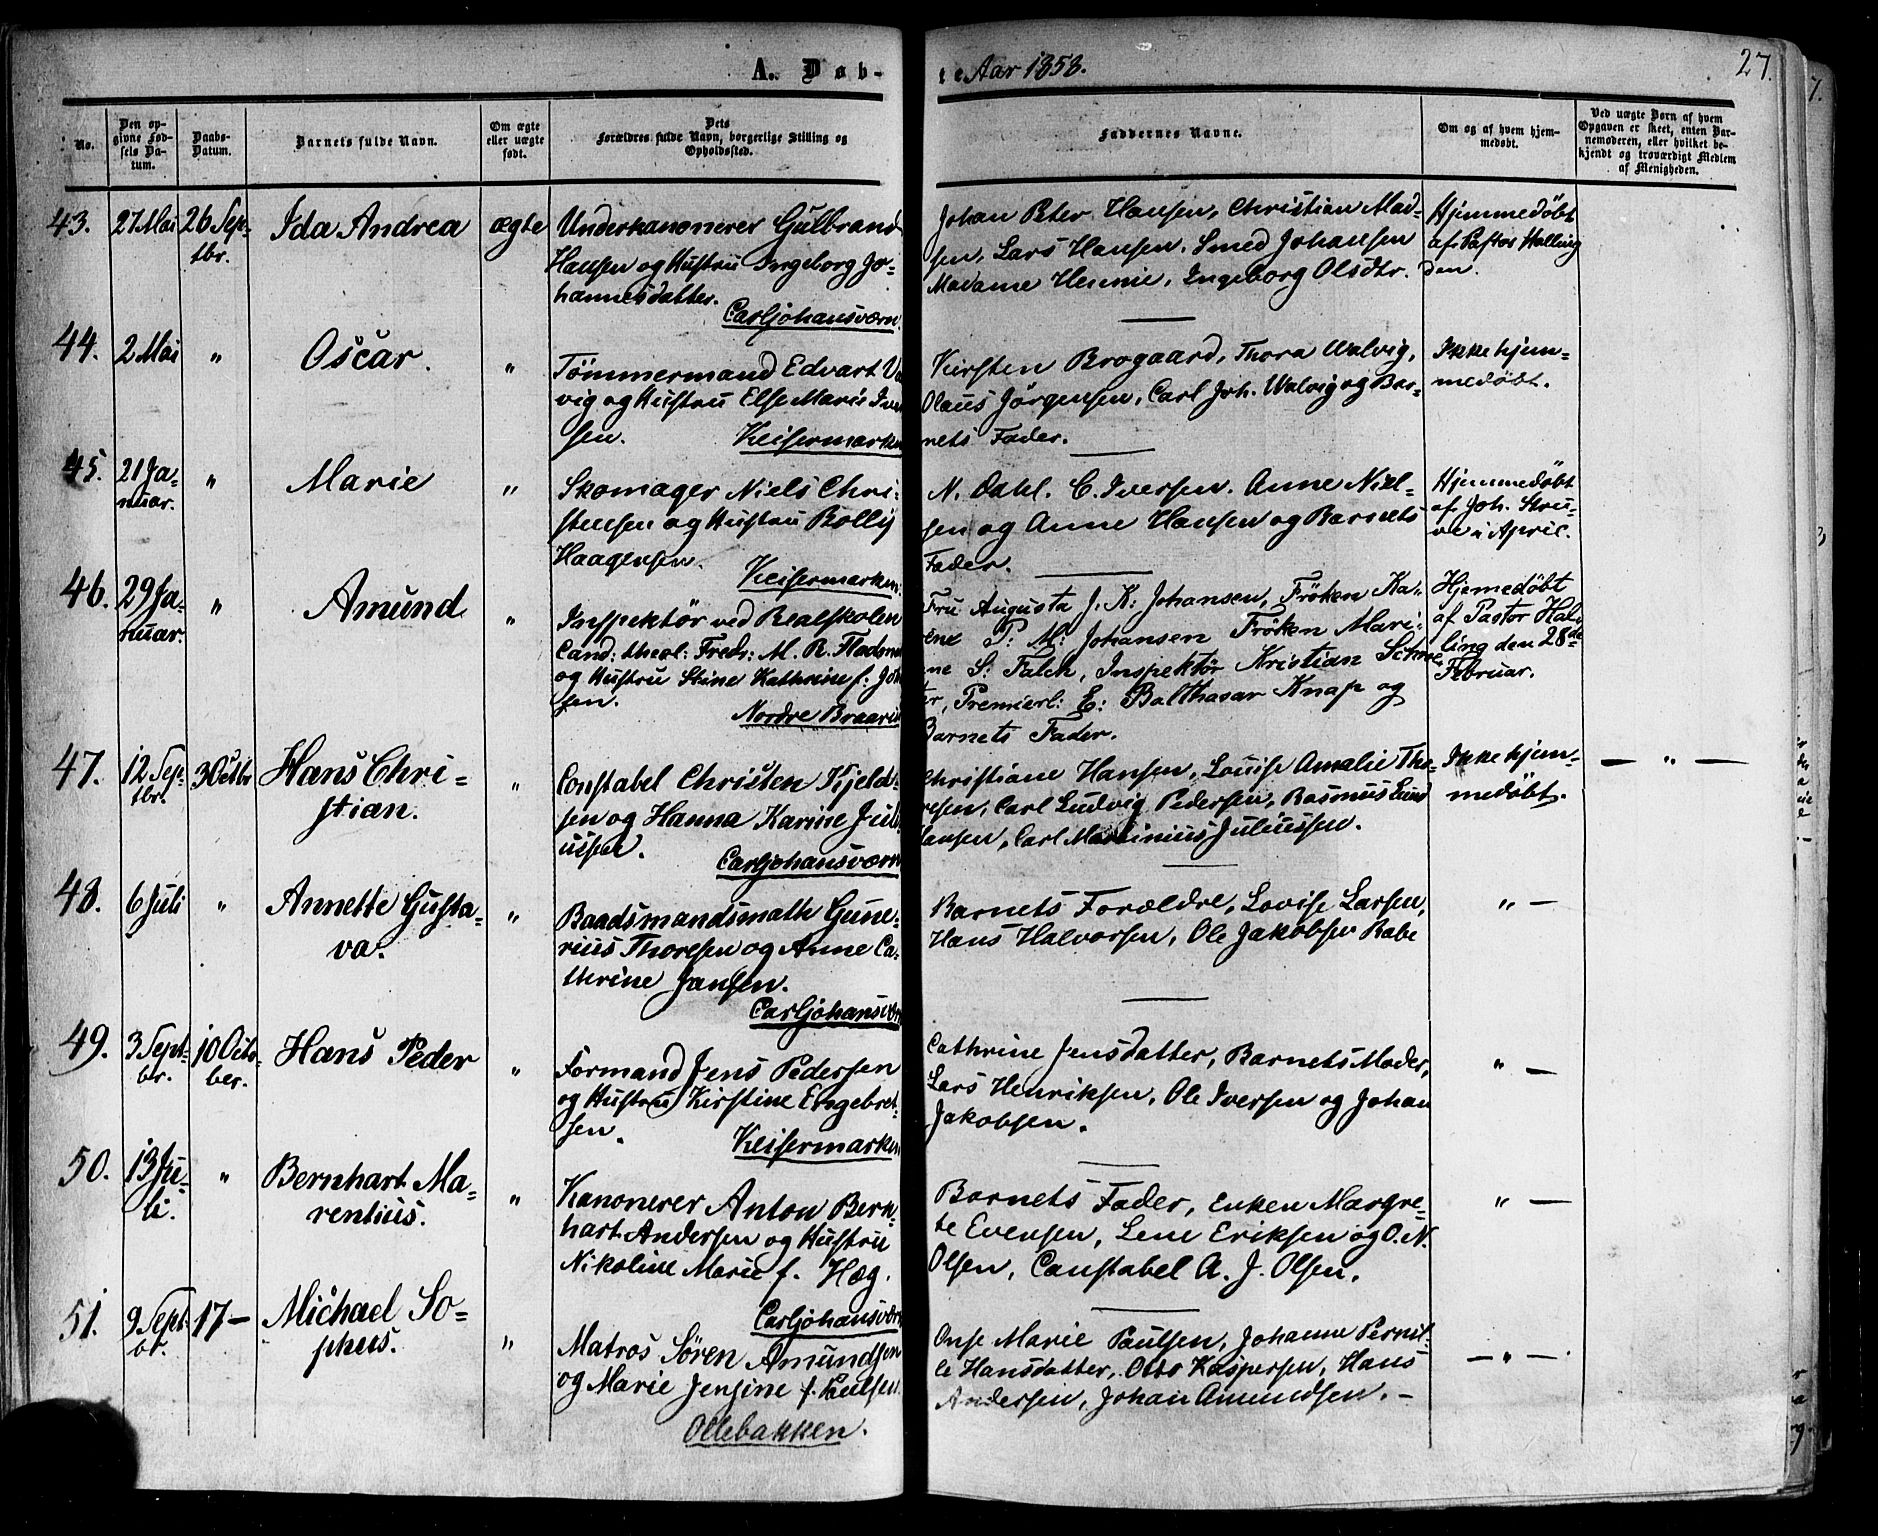 A. Døb-
te Aar 1858.
27.
No.
Den op-
givne Fød-
sels Da-
tum.
Daabs-
Datum.
Barnets fulde Navn.
Om ægte
eller uægte
født.
Dets
Forældres fulde Navn, borgerlige Stilling og
Opholdssted.
Faddernes Navne.
Om og af hvem hjem-
medøbt.
Ved uægte Børn af hvem
Opgaven er skeet, enten Bar-
nemoderen, eller hvilket be-
kjendt og troværdigt Medlem
af Menigheden.
43.
27 Mai
26 Sep-
tbr.
Ida Andrea
ægte
Underkanonerer Gulbrand
Hansen og Hustru Ingeborg Jo-
hannesdatter.
Carljohansværn.
Johan Peter Hansen, Christian Mad-
sen, Lars Hansen, Smed Johansen
Madame Hennie, Ingeborg Olsdtr.
Hjemmedøbt
af Pastor Halling
den.
44.
2 Mai
"
Oscar.
"
Tømmermand Edvart Va
vig og Hustru Else Marie Iver
sen.
Keisermarken
Kirsten Brogaard, Thora Walvig,
Olaus Jørgensen, Carl Joh. Walvig og Bar-
nets Fader.
Ikke hjem-
medøbt.
45.
21 Ja-
nuar.
"
Marie
"
Skomager Niels Chri-
stensen og Hustru Bolly
Haagensen.
Keisermarken.
N. Dahl. C. Iversen. Anne Niel-
sen og Anne Hansen og Barnets
Fader.
Hjemmedøbt
af Joh. Stru-
ve i April.
46.
29 Ja-
nuar.
"
Amund
"
Inspektør ved Realskolen
Cand: theol: Fredr: M. R. Flads
og Hustru Stine Kathrine f. Joh
sen.
Nordre Braarud
Fru Augusta J. K. Johansen, Frøken Ka-
rene P: M: Johansen Frøken Mari-
ne S: Falch, Inspektør Kristian Schrø
ter, Premierl: E: Balthasar Knap og
Barnets Fader.
Hjemedøbt
af Pastor Hal-
ling den 28de
Februar.
47.
12 Sep-
tbr.
3 Octbr
Hans Chri-
stian.
"
Constabel Christen Kjeld-
sen og Hanna Karine Juli
ussen.
Carljohansværn
Christiane Hansen, Louise Amalie Tho-
resen, Carl Ludvig Pedersen, Rasmus Lund
Hansen, Carl Martinius Juliussen.
Ikke hjem-
medøbt.
— " —
48.
6 Juli
"
Annette Gusta-
va.
"
Baadsmandsmath Gune-
rius Thoresen og Anne Ca-
thrine Jansen.
Carljohansvær
Barnets Forældre, Lovise Larsen,
Hans Halvorsen, Ole Jakobsen Rabe
" —
49.
3 Sept-
br.
10 Octo-
ber.
Hans Peder
"
Formand Jens Pedersen
og Hustru Kirstine Engebret-
sen.
Keisermarken
Cathrine Jensdatter, Barnets Moder,
Lars Henriksen, Ole Iversen og Johan
Jakobsen.
" —
50.
13 Ju-
li.
"
Bernhart Ma-
rentius.
"
Kanonerer Anton Bern-
hart Andersen og Hustru
Nikoline Marie f. Hæg.
Carljohansværn
Barnets Fader, Enken Margre-
te Evensen, Lene Eriksen og O. N.
Olsen, Constabel A. J. Olsen.
" —
51.
9 Sept-
br.
17 —
Michael So-
phus.
"
Matros Søren Amundsen
og Marie Jensine f. Paulsen.
Ollebakken.
Onse Marie Paulsen, Johanne Pernil-
le Hansdatter, Otto Kaspersen, Hans
Andersen, Johan Amundsen. —
— " —